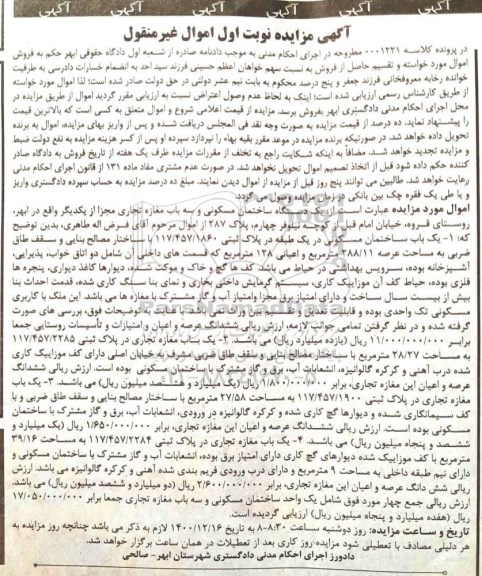 آگهی مزایده نوبت اول اموال غیرمنقول
در پرونده کلاسه ۰۰۰۱۲۲۱ مطروحه در اجرای احکام مدنی به موجب دادنامه صادره از شعبه اول دادگاه حقوقی ابهر حکم به فروش
اموال مورد خواسته و تقسیم حاصل از فروش به نسبت سهم خواهان اعظم حسینی فرزند سید احد به انضمام خسارات دادرسی به طرفیت
خوانده رخابه معروفخانی فرزند جعفر و پنج درصد محکوم به بابت نیم عشر دولتی در حق دولت صادر شده است؛ لذا اموال مورد خواسته
از طریق کارشناس رسمی ارزیابی شده است؛ اینک به لحاظ عدم وصول اعتراض نسبت به ارزیابی مقرر گردید اموال از طریق مزایده در
محل اجرای احکام مدنی دادگستری ابهر بفروش برسد. مزایده از قیمت اعلامی شروع و اموال متعلق به کسی است که بالاترین قیمت
را پیشنهاد نماید. ده درصد از قیمت مزایده به صورت وجه نقد فی المجلس دریافت شده و پس از واریز بهای مزایده، اموال به برنده
تحویل داده خواهد شد. در صورتیکه برنده مزایده در موعد مقرر بقیه بهاء را نپردازد سپرده او پس از کسر هزینه مزایده به نفع دولت ضبط
و مزایده تجدید خواهد شد. مضافاً به اینکه شکایت راجع به تخلف از مقررات مزایده ظرف یک هفته از تاریخ فروش به دادگاه صادر
کننده حکم داده شود قبل از اتخاذ تصمیم اموال تحویل نخواهد شد. در صورت عدم مشتری مفاد ماده ۱۳۱ از قانون اجرای احکام مدنی
رعایت خواهد شد. طالبین می توانند پنج روز قبل از مزایده از اموال دیدن نمایند. مبلغ ده درصد مزایده به حساب سپرده دادگستری واریز
و یا طی یک فقره چک بین بانکی به برنده مزایده وصول می گردد.
اموال مورد مزایده عبارت است از: یک دستگاه ساختمان مسکونی و سه باب مغازه تجاری مجزا از یکدیگر واقع در ابهر،
روستای قروه، خیابان امام قبل از کوچه نیلوفر چهارم، پلاک ۲۸۷ از اموال مرحوم آقای فرض اله طاهری، بدین توضیح
که: ۱- یک باب ساختمان مسکونی در یک طبقه در پلاک ثبتی ۱۱۷/۴۵۷/۱۸۶۰ با ساختار مصالح بنایی و سقف طاق
ضربی به مساحت عرصه ۲۸۸/۱۱ مترمربع و اعیانی ۱۲۸ مترمربع که قسمت های داخلی آن شامل دو اتاق خواب، پذیرایی،
آشپزخانه بوده، سرویس بهداشتی در حیاط می باشد. کف ها گچ و خاک و موکت شده، دیوارها کاغذ دیواری، پنجره ها
فلزی بوده، حیاط کف آن موزاییک کاری، سیستم گرمایش داخلی بخاری و نمای بنا سنگ کاری شده، قدمت احداث بنا
بیش از بیست سال ساخت و دارای امتیاز برق مجزا وامتیاز آب و گاز مشترک با مغازه ها می باشد. این ملک با کاربری
مسکونی تک واحدی بوده و قابلیت
گرفته شده و در نظر گرفتن تمامی جوانب لازمه، ارزش ریالی ششدانگ عرصه و اعیان و امتیازات و تأسیسات روستایی جمعا
برابر ۱۱/۰۰۰/۰۰۰/۰۰۰ ریال (یازده میلیارد ریال) می باشد. ۲- یک باب مغازه تجاری در پلاک ثبتی ۱۱۷/۴۵۷/۲۲۸۵
به مساحت ۲۸/۲۷ مترمربع با ساختار مصالح بنایی و سقف طاق ضربی مشرف به خیابان اصلی دارای کف موزاییک کاری
شده درب آهنی و کرکره گالوانیزه، انشعابات آب، برق و گاز مشترک با ساختمان مسکونی بوده است. ارزش ریالی ششدانگ
عرصه و اعیان این مغازه تجاری، برابر ۱/۸۰۰/۰۰۰/۰۰۰ ریال (یک میلیارد و هشتصد میلیون ریال) می باشد. ۳- یک باب
مغازه تجاری در پلاک ثبتی ۱۱۷/۴۵۷/۱۹۰۰ به مساحت ۲۷/۵۸ مترمربع با ساختار مصالح بنایی و سقف طاق ضربی و با
کف سیمانکاری شده و دیوارها گچ کاری شده و کرکره گالوانیزه در ورودی، انشعابات آب، برق و گاز مشترک با ساختمان
مسکونی بوده است. ارزش ریالی ششدانگ عرصه و اعیان این مغازه تجاری، برابر ۱/۶۵۰/۰۰۰/۰۰۰ ریال (یک میلیارد و
ششصد و پنجاه میلیون ریال) می باشد. ۴- یک باب مغازه تجاری در پلاک ثبتی ۱۱۷/۴۵۷/۲۲۸۴ به مساحت ۳۹/۱۶
مترمربع با کف موزاییک شده دیوارهای گچ کاری دارای امتیاز برق بوده، انشعابات آب و گاز مشترک با ساختمان مسکونی و
دارای نیم طبقه داخلی به مساحت ۹ مترمربع و دارای درب ورودی فریم بندی شده آهنی و کرکره گالوانیزه می باشد. ارزش
ریالی شش دانگ عرصه و اعیان این مغازه تجاری، برابر ۲/۶۰۰/۰۰۰/۰۰۰ ریال (دو میلیارد و ششصد میلیون ریال) می باشد.
ارزش ریالی جمع چهار مورد فوق شامل یک واحد ساختمان مسکونی و سه باب مغازه تجاری جمعا برابر ۱۷/۰۵۰/۰۰۰/۰۰۰
ریال (هفده میلیارد و پنجاه میلیون ریال) ارزیابی گردیده است.
تاریخ و ساعت مزایده: روز دوشنبه ساعت ۸:۳۰-۸ به تاریخ ۱۴۰۰/۱۲/۱۶ لازم به ذکر می باشد چنانچه روز مزایده به
هر دلیلی مصادف با تعطیلی شود مزایده روز کاری بعد از تعطیلات در همان ساعت برگزار خواهد شد.
دادورز اجرای احکام مدنی دادگستری شهرستان ابهر- صالحی